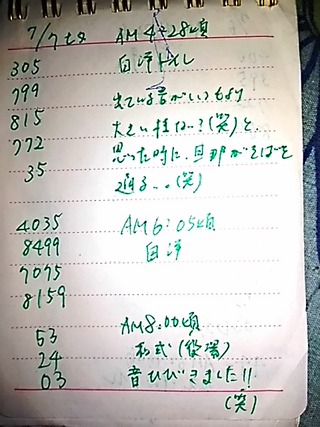 7/7セタ AM4:28頃
305 自洋トイレ
799 出ている音がいつもより
815 大きい様な?(笑)と、
772 思った時に、旦那がそばを
35 通る...(笑)
4035 AM6:05頃
8499 自洋
7075
8159
53 AM8:00頃
24 和式(役場)
03 音ひびきました!!
(笑)